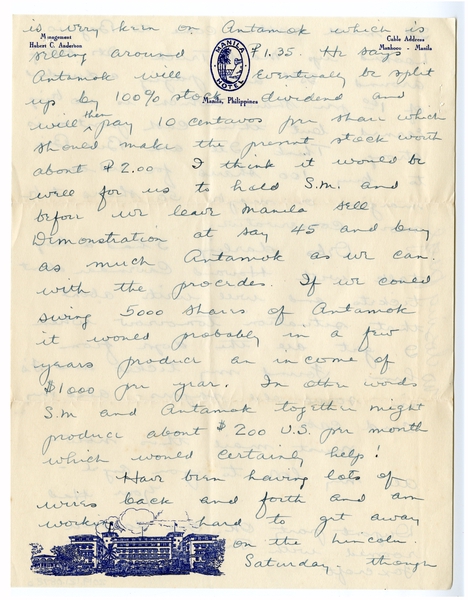 is very keen on Antamok which is
Management
Hubert C. Anderson
MANILA HOTEL
Cable Address
Manhoco - Manila
selling around ₱1.35. He says
Antamok will eventually be split
up by 100% stock dividend and
Manila, Philippines
will then pay 10 centavos per share which
should make the present stock worth
about ₱2.00 I think it would be
well for us to hold S.M. and
before we leave Manila sell
Demonstration at say 45 and buy
as much Antamok as we can
with the procedes. If we could
swing 5000 shares of Antamok
it would probably in a few
years produce an income of
$1000 per year. In other words
S.M and Antamok together might
produce about $200 U.S. per month
which would certainly help!
Have been having lots of
wires back and forth and am
working hard to get away
on the Lincoln
Saturday though